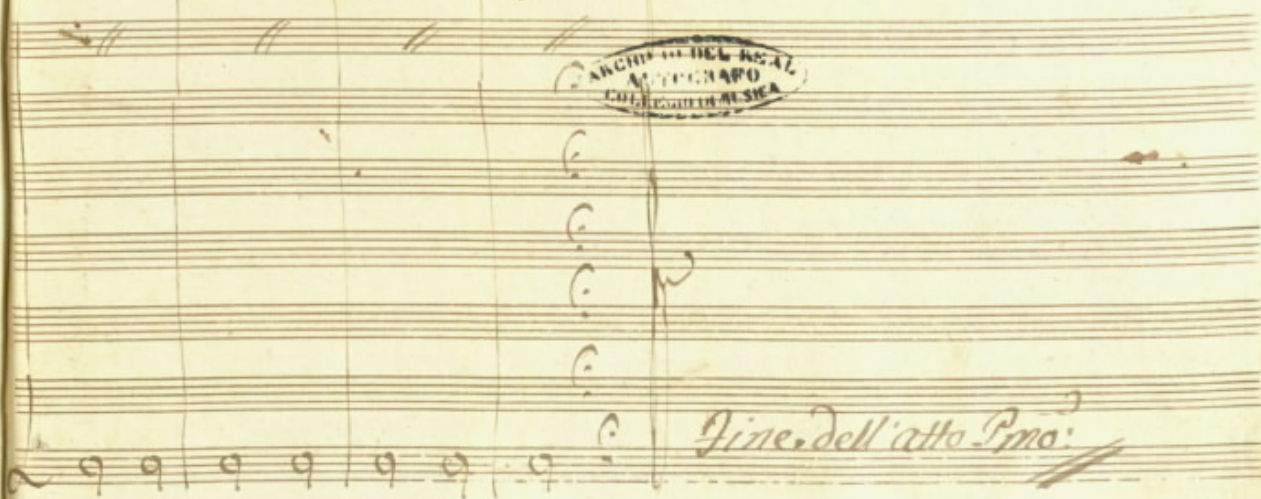 ARCHIVIO DEL REAL
AUTOGRAFO
COLLEGIO DI MUSICA
Fine. dell'atto Pmo: